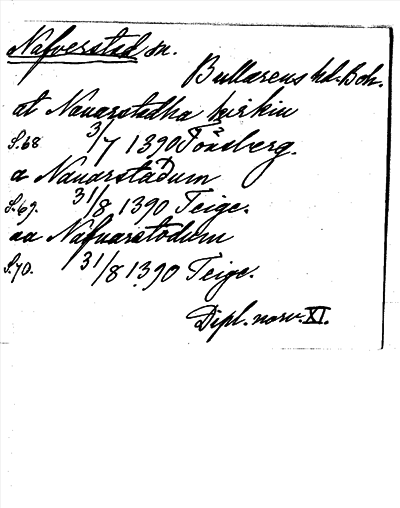 Nafverstad sn.
Bullarens hd. Boh.
at Nauarstadha kirkiu
S.68 3/7 1390 Tönsberg.
a Nauarstadum
S.69. 31/8 1390 Teige.
aa Nafuarstodum
S.70. 31/8 1390 Teige.
Dipl. norv. XI.